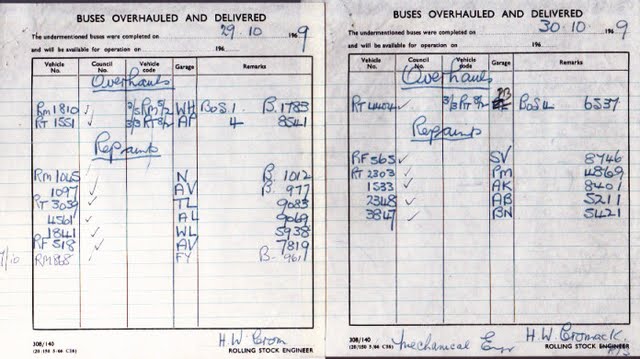 BUSES OVERHAULED AND DELIVERED
The undermentioned buses were completed on 29.10 1969
and will be available for operation on 196
Vehicle No. Council No. Vehicle code Garage Remarks
Overhauls
RM1810 ✓ 3/5RM5/2 WH BOS1. B.1783
RT 1551 ✓ 3/3RT8/2 AP 4 8541
Repaints
RM1045 ✓ N B 1012
1097 ✓ AV B. 977
RT 3039 ✓ TL 9083
4561 ✓ AL 9069
1841 ✓ WL 5938
RF 518 ✓ AV 7819
RM868 FY B- 961
308/140
H.W. Crom
ROLLING STOCK ENGINEER
BUSES OVERHAULED AND DELIVERED
The undermentioned buses were completed on 30.10 1969
and will be available for operation on 196
Vehicle No. Council No. Vehicle code Garage Remarks
Overhauls
RT 4404 ✓ 3/3RT8/2 PB BOS4 6537
Repaints
RF 565 ✓ SV 8746
RT 2303 ✓ PM 4869
1533 ✓ AK 8401
2348 ✓ AB 5211
3847 ✓ BN 5421
308/140
Mechanical Engr H.W. Cromack
ROLLING STOCK ENGINEER